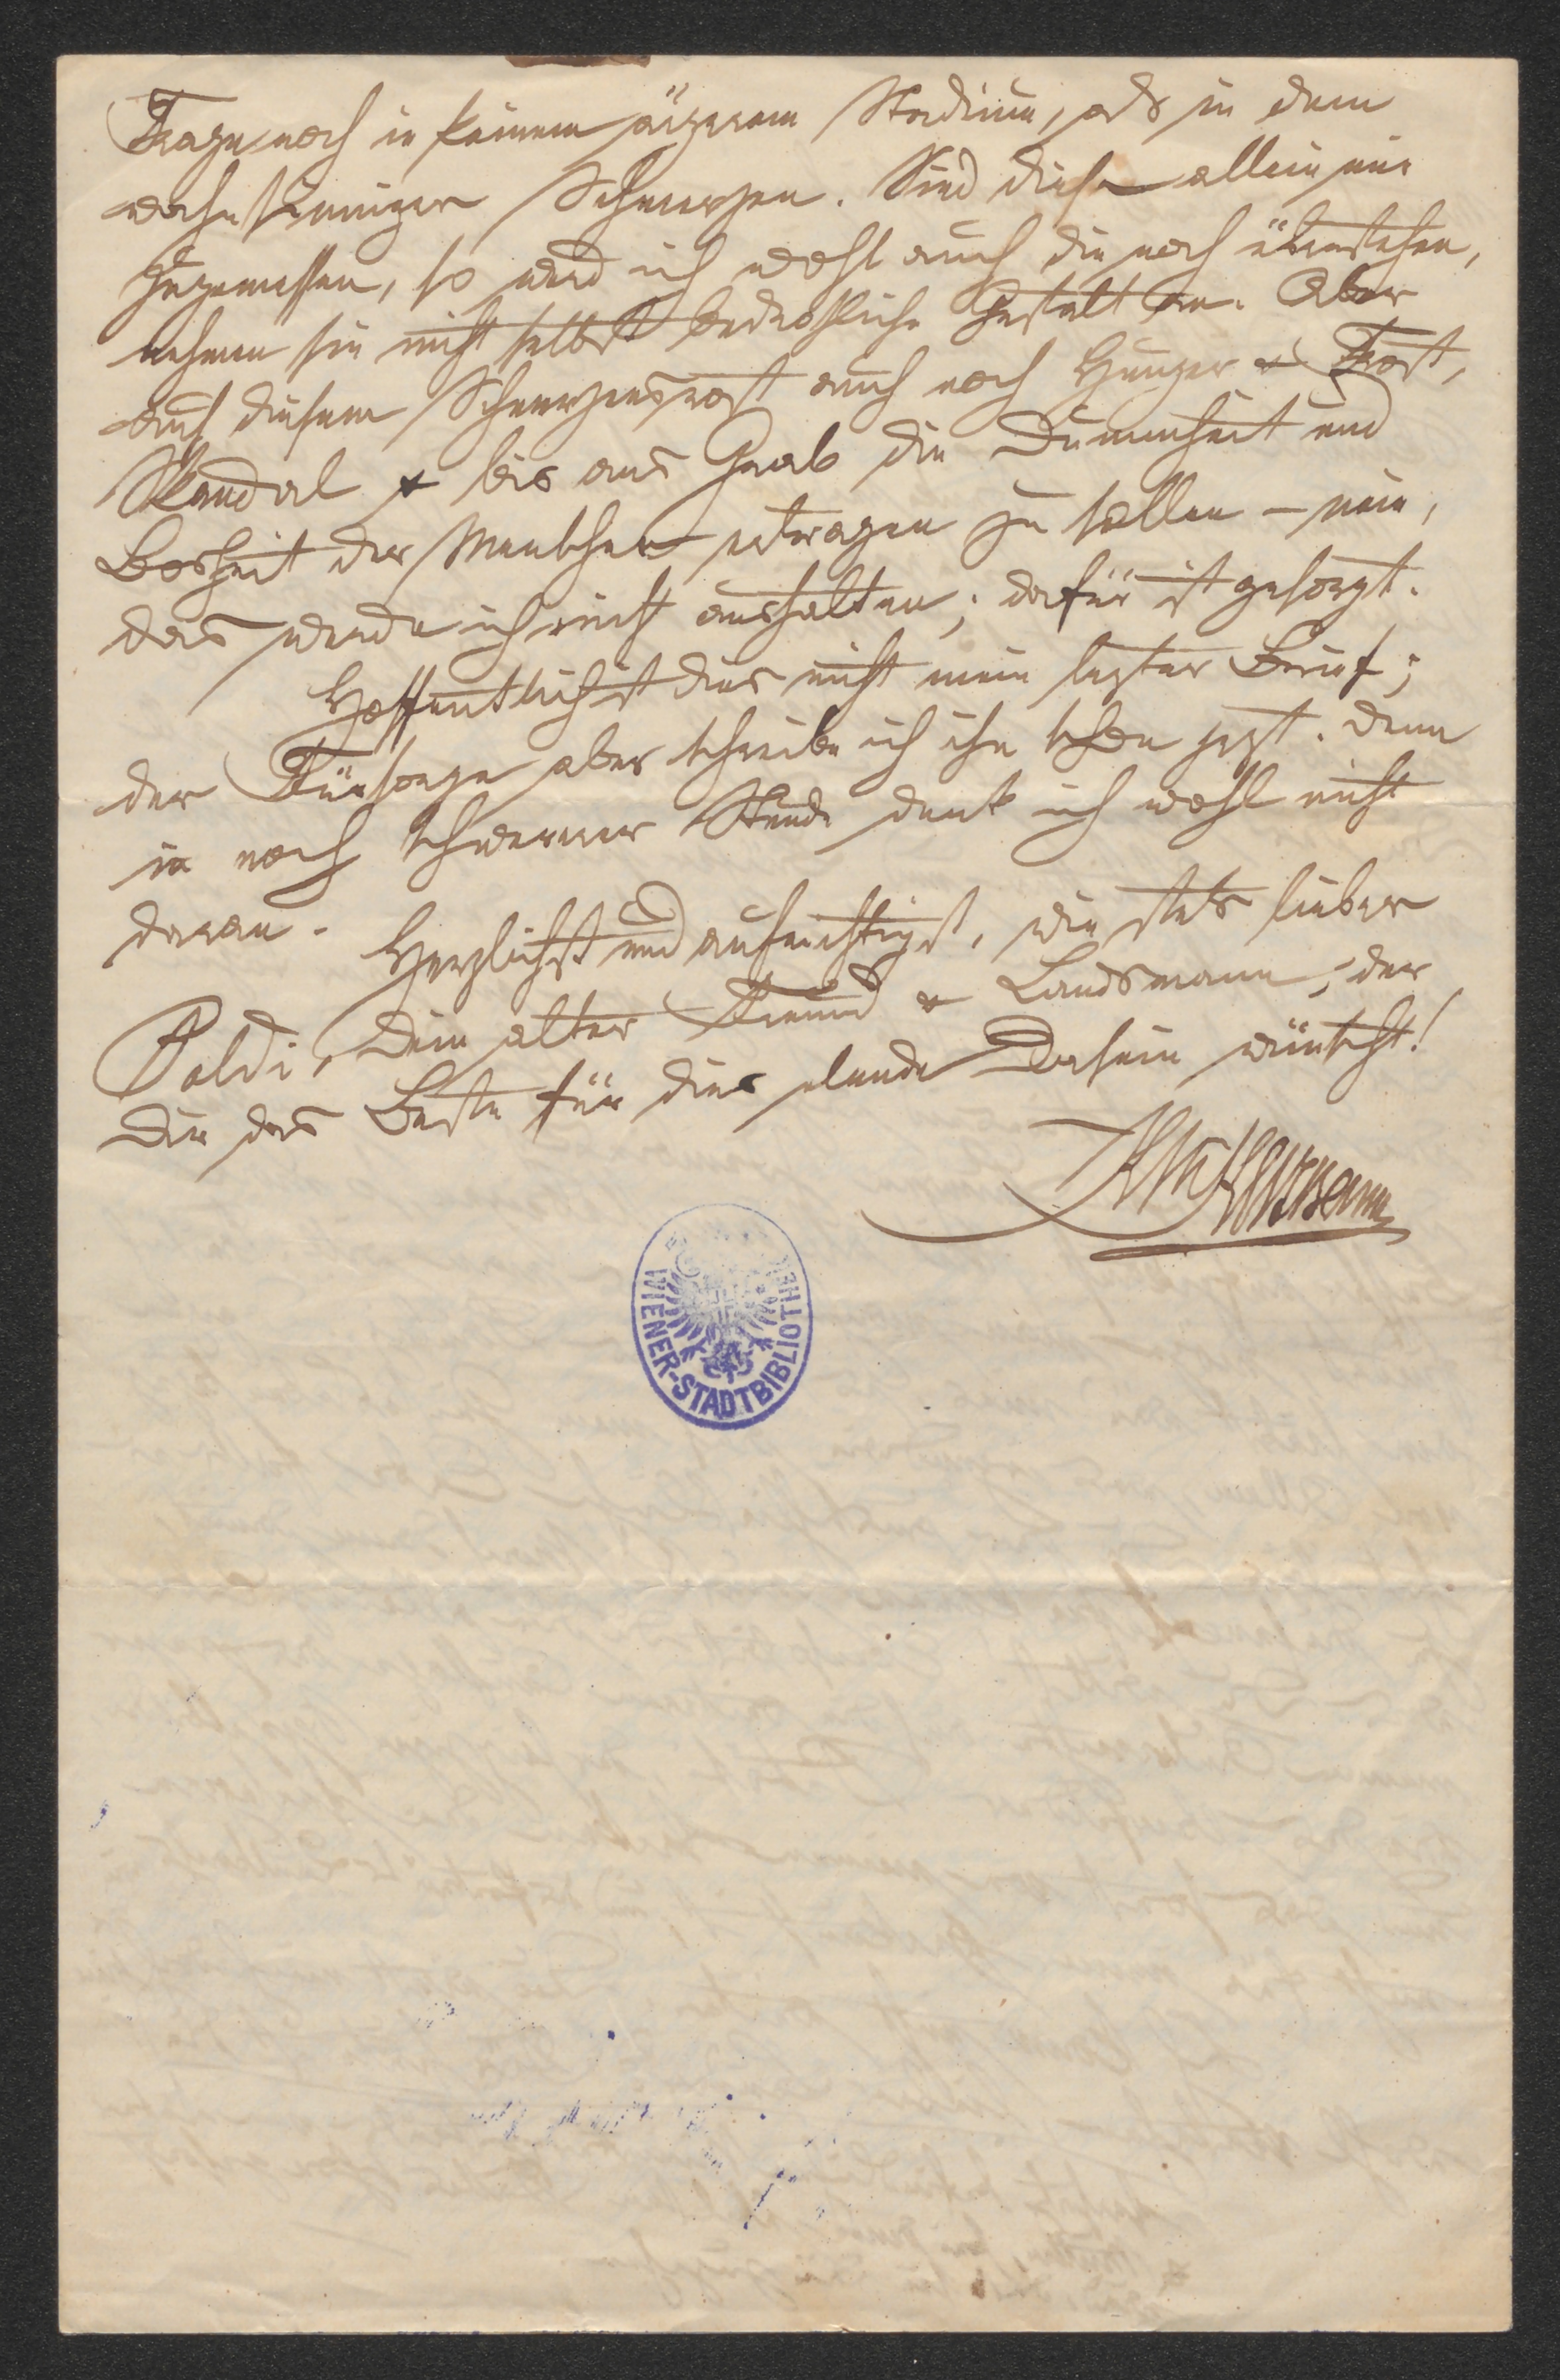 Frage noch in keinem ärgerem Stadium, als in dem
wahnsinniger Schmerzen. Sind diese allein mir
zugemessen, so werd ich wohl auch die noch überstehen,
nehmen sie nicht selbst bedrohliche Gestalt an. Aber
auf diesem Schmerzensrost auch noch Hunger & Frost,
Skandal & bis ans Grab die Dummheit und
Bosheit der Menschen ertragen zu sollen – nein,
das werde ich nicht aushalten; dafür ist gesorgt.
Hoffentlich ist dies nicht mein lezter Brief;
der Fürsorge aber schreibe ich ihn schon jezt. denn
in noch schwererer Stunde denk ich wohl nicht
daran. Herzlichst und aufrichtigst, wie stets lieber
Poldi, Dein alter Freund & Landsmann, der
Dir das Beste für dies elende Dasein wünscht!
WIENER-STADTBIBLIOTHEK